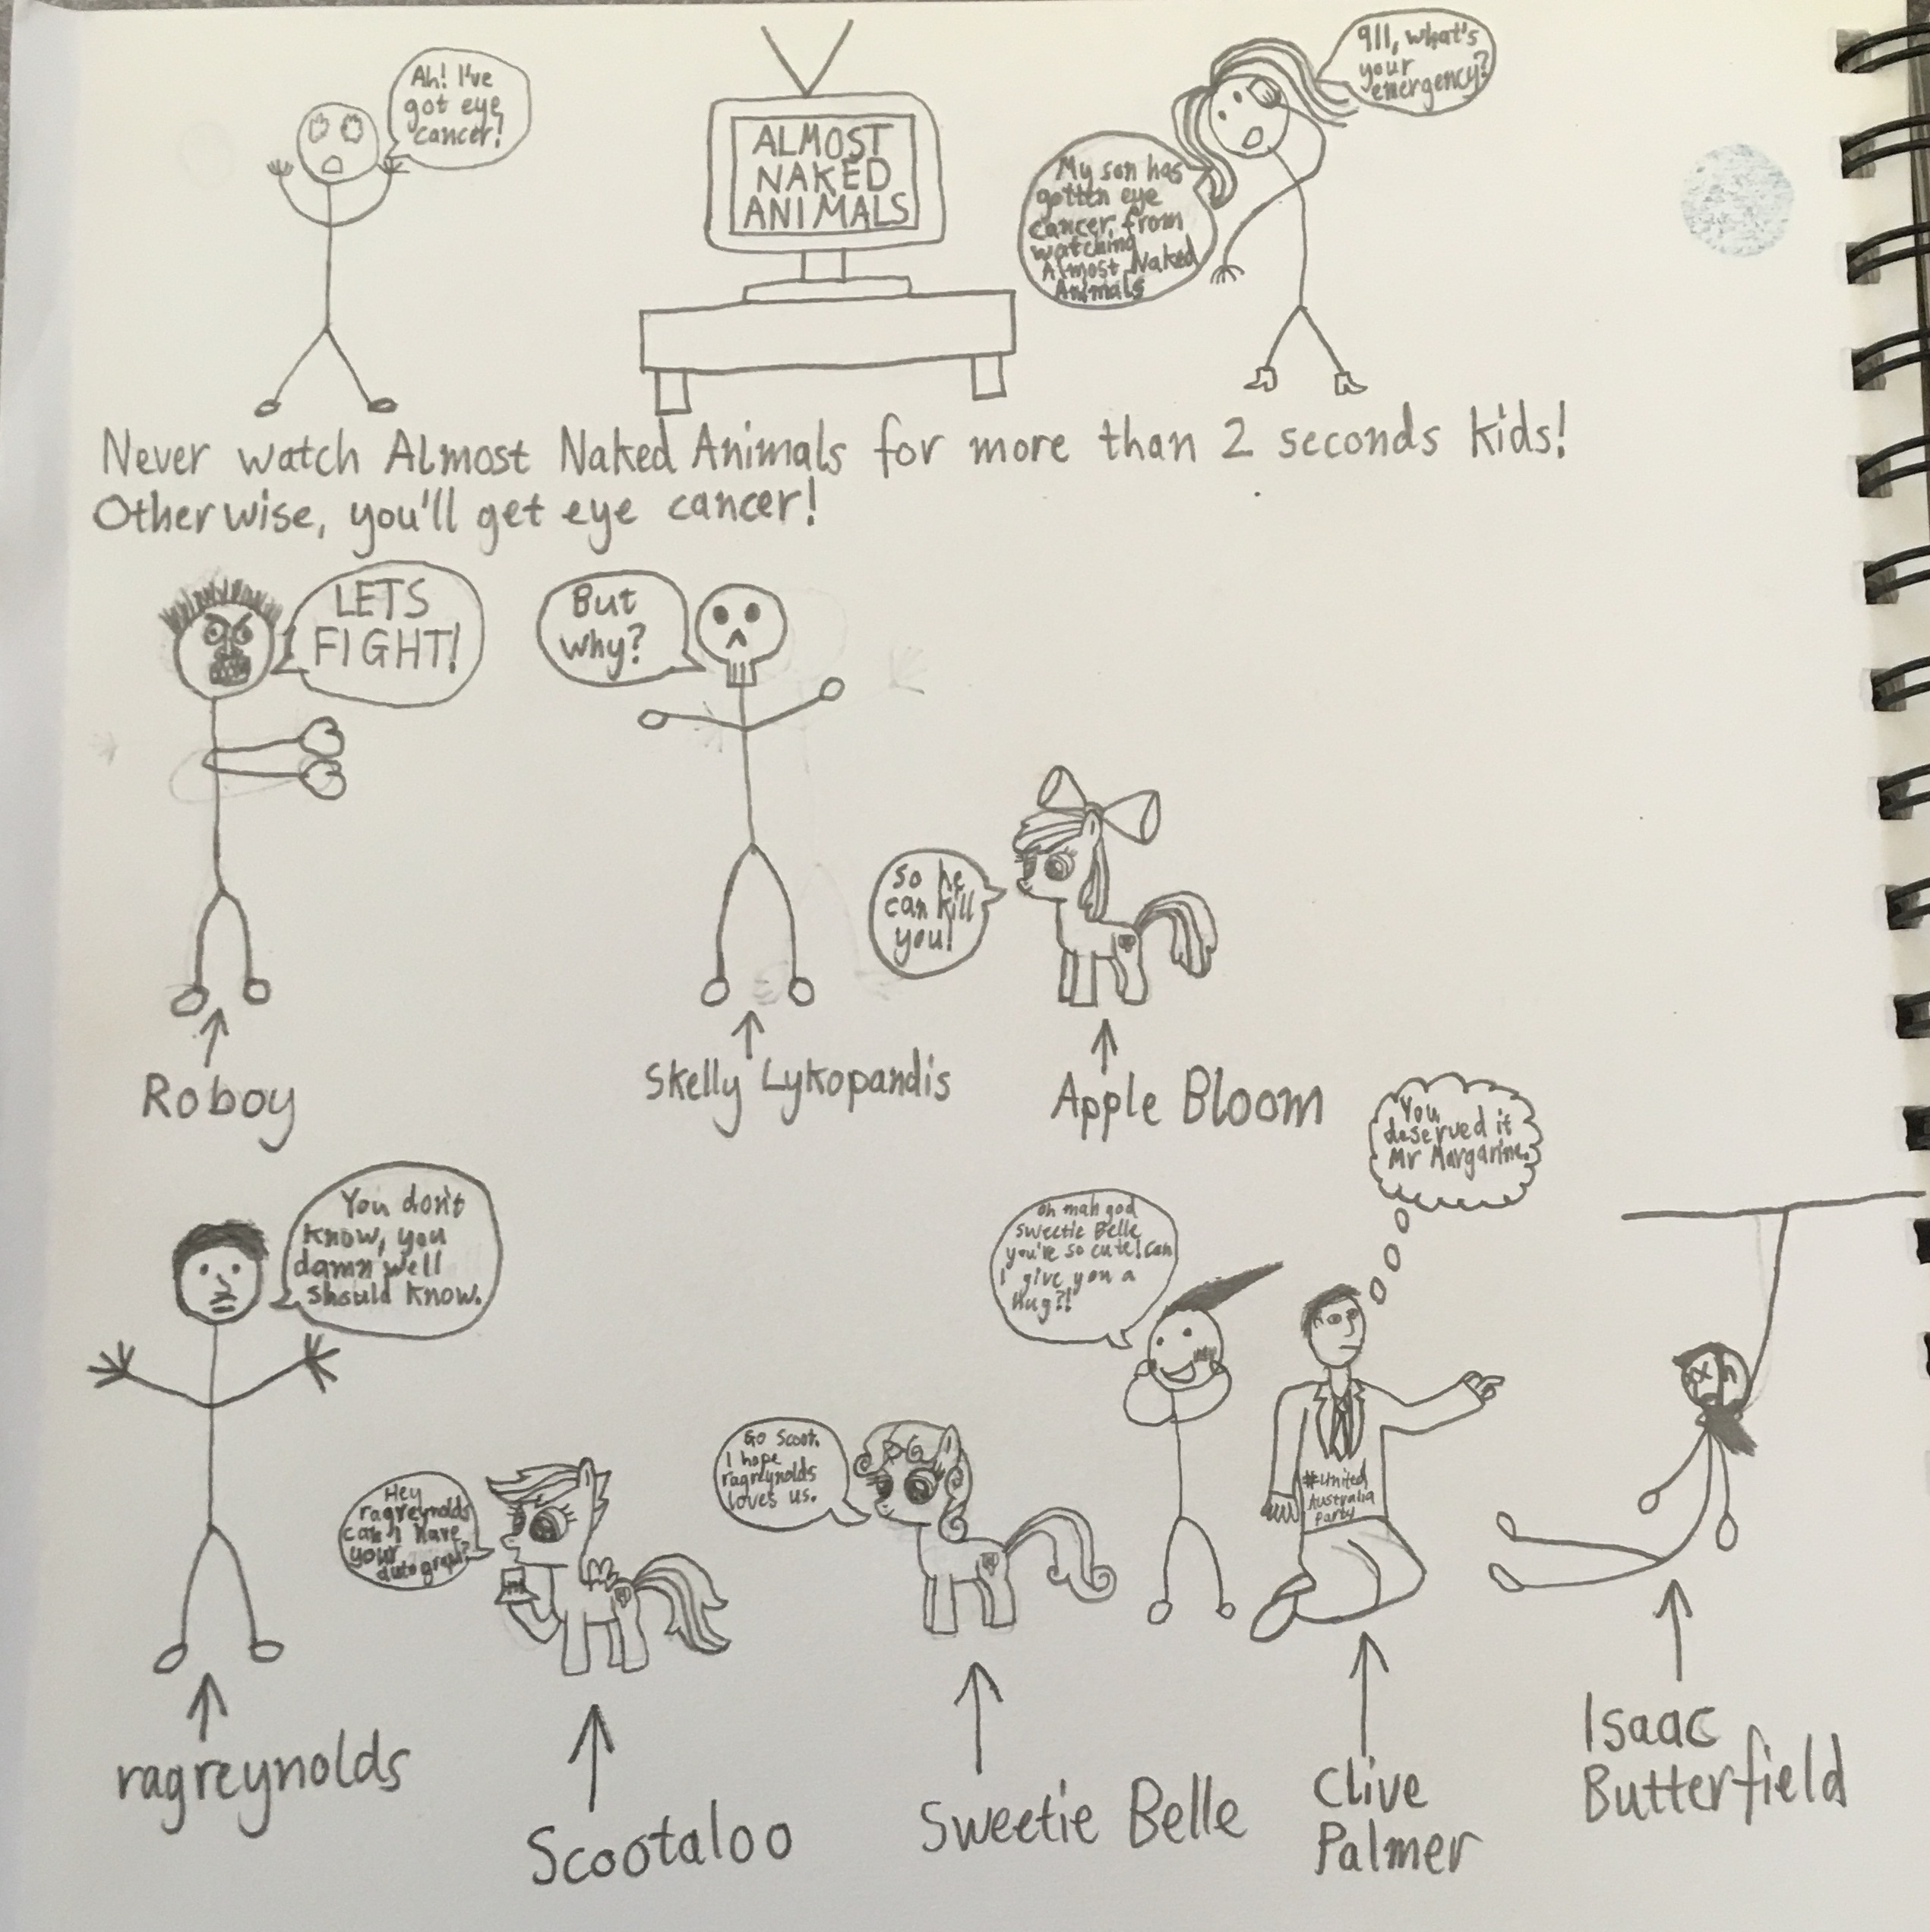 Ah! I've
got eye
cancer!
ALMOST
NAKED
ANIMALS
911, what's
your
emergency?
My son has
gotten eye
cancer, from
watching
Almost Naked
Animals
Never watch Almost Naked Animals for more than 2 seconds kids!
Otherwise, you'll get eye cancer!
LETS
FIGHT!
But
why?
So he
can kill
you!
Roboy
Skelly Lykopandis
Apple Bloom
You don't
know, you
damn well
should know.
Hey
ragreynolds
can I have
your
autograph?
Go Scoot.
I hope
ragreynolds
loves us.
Oh mah god
Sweetie Belle
you're so cute! Can
I give you a
Hug?!
You
deserved it
Mr Margarine.
#United
Australia
Party
ragreynolds
Scootaloo
Sweetie Belle
Clive
Palmer
Isaac
Butterfield